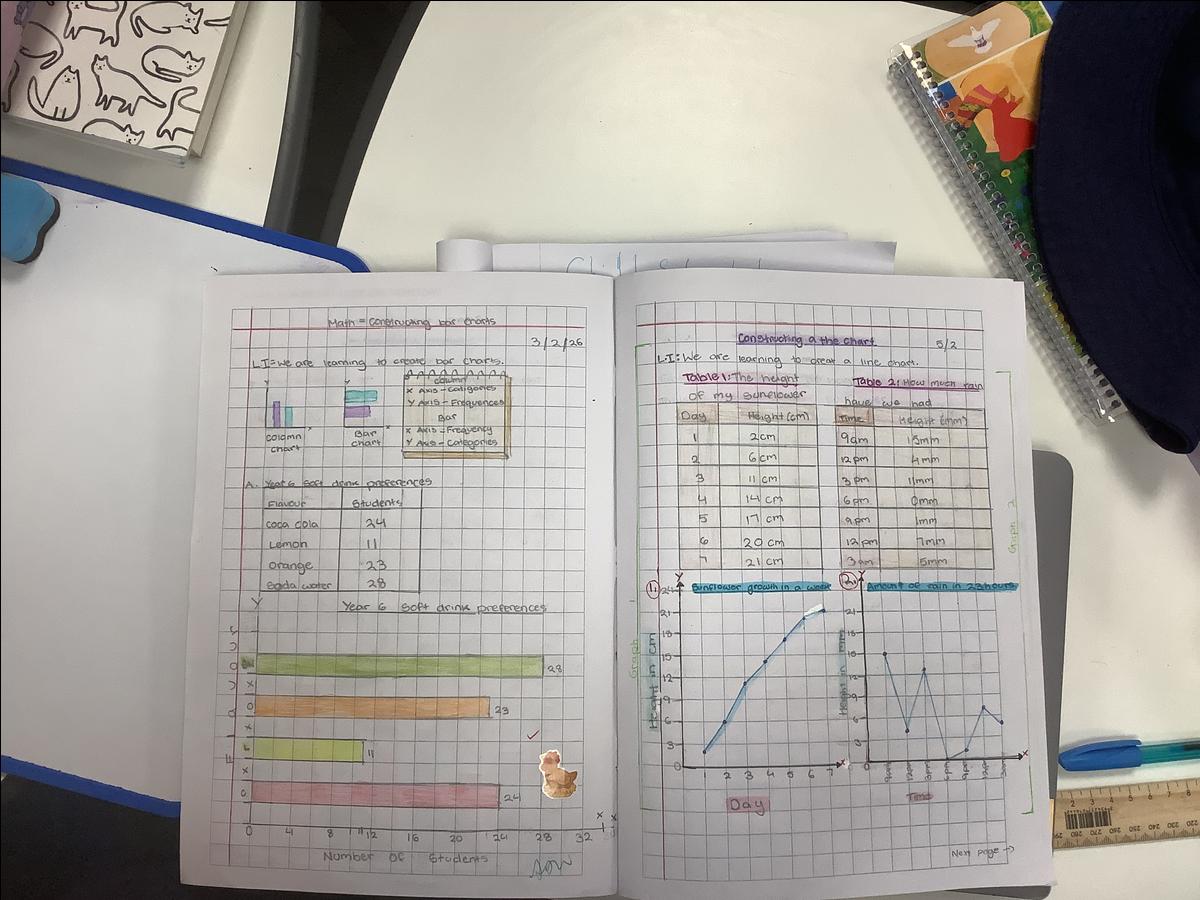 Math = Constructing bar charts
3/2/26
L.I = We are learning to create bar charts.
Y
x
Column chart
Y
x
Bar chart
Column
X Axis - Catigories
Y Axis - Frequences
Bar
X Axis - Frequency
Y Axis - Categories
A. Year 6 soft drink preferences
Flavour Students
coca cola 24
Lemon 11
orange 23
Soda water 28
Y
Year 6 soft drink preferences
28
23
11
24
x
0 4 8 11 12 16 20 24 28 32
Number Of Students
Constructing a the chart
5/2
L.I: We are learning to creat a line chart.
Table 1: The height
of my sunflower
Day Height (cm)
1 2cm
2 6 cm
3 11 cm
4 14 cm
5 17 cm
6 20 cm
7 21 cm
Table 2: How much rain
have we had
Time Height (mm)
9am 15mm
12 pm 4mm
3 pm 11mm
6pm 0mm
9pm 1mm
12 pm 7mm
3 am 5mm
Graph
Graph 2
1.
Y
Sunflower growth in a week
24
21
18
15
12
9
6
3
0
1 2 3 4 5 6 7
x
Height in cm
Day
2.
Y
Amount of rain in 23 hours
21
18
15
12
9
6
3
0
9am 12pm 3pm 6pm 9pm 12pm 3am
x
Height in mm
Time
Next page →
2 3 4 5 6 7 8
290 280 270 260 230 220